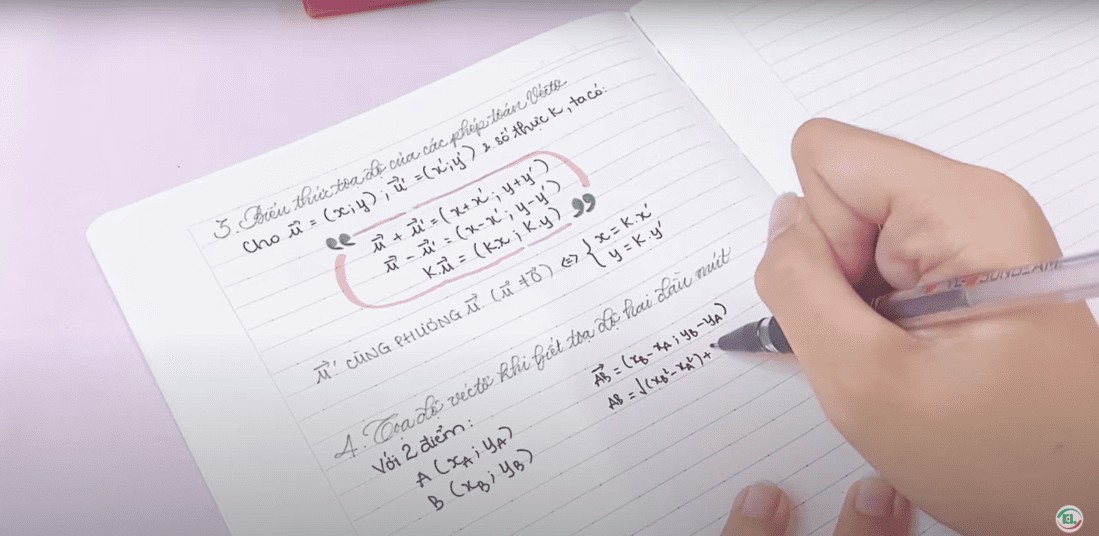 3. Biểu thức tọa độ của các phép toán Véctơ
Cho u⃗ = (x; y); u⃗' = (x'; y') & số thực k, ta có:
u⃗ + u⃗' = (x+x'; y+y')
u⃗ - u⃗' = (x-x'; y-y')
k.u⃗ = (kx; k.y)
u⃗' CÙNG PHƯƠNG u⃗ (u⃗ ≠ 0⃗) ⇔ { x = k.x'
y = k.y'
4. Tọa độ véctơ khi biết tọa độ hai đầu mút
Với 2 điểm:
A (x_A; y_A)
B (x_B; y_B)
AB⃗ = (x_B - x_A; y_B - y_A)
AB = √(x_B² - x_A²) +
TL
SUNBEAM
TEL